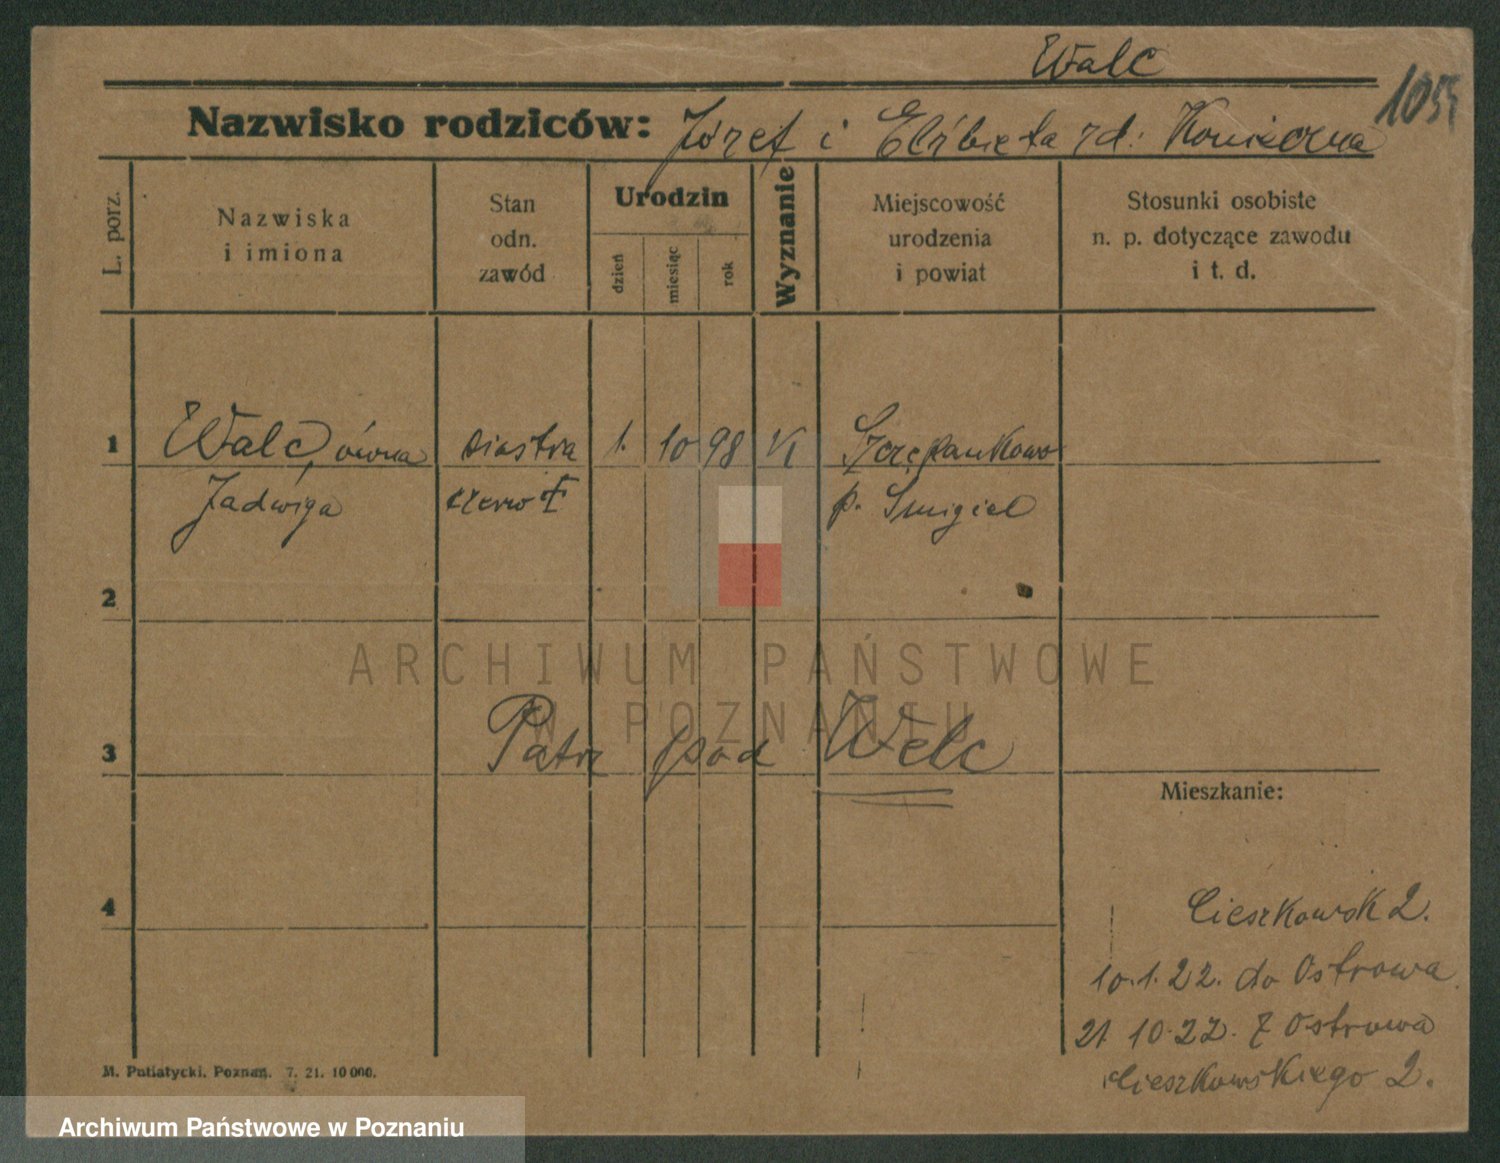 Walc
1055
Nazwisko rodziców: Józef i Elżbieta rd:
L. porz.
Nazwiska
i imiona
Stan
odn.
zawód
Urodzin
dzień
miesiąc
rok
Wyznanie
Miejscowość
urodzenia
i powiat
Stosunki osobiste
n. p. dotyczące zawodu
i t. d.
1 Walc, ówna siostra 1. 10 98 K Szczepankowo
Jadwiga czerw p. Śmigiel
2
ARCHIWUM PAŃSTWOWE
W POZNANIU
3 Patrz pod Welc
Mieszkanie:
4
Cieszkowsk 2.
10.1.22. do Ostrowa
21 10.22. z Ostrowa
Cieszkowskiego 2.
M. Putiatycki. Poznań. 7. 21. 10 000.
Archiwum Państwowe w Poznaniu